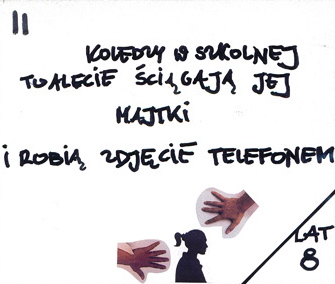 11
KOLEDZY W SZKOLNEJ
TOALECIE ŚCIĄGAJĄ JEJ
MAJTKI
I ROBIĄ ZDJĘCIE TELEFONEM
LAT
8